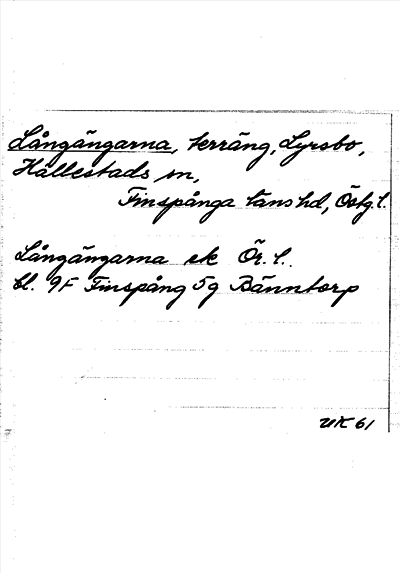 Långängarna, terräng, Lyrsbo,
Hällestads sn,
Finspånga läns hd, Östg.l.
Långängarna ek Ör. l.
bl. 9F Finspång 5g Bänntorp
UK 61